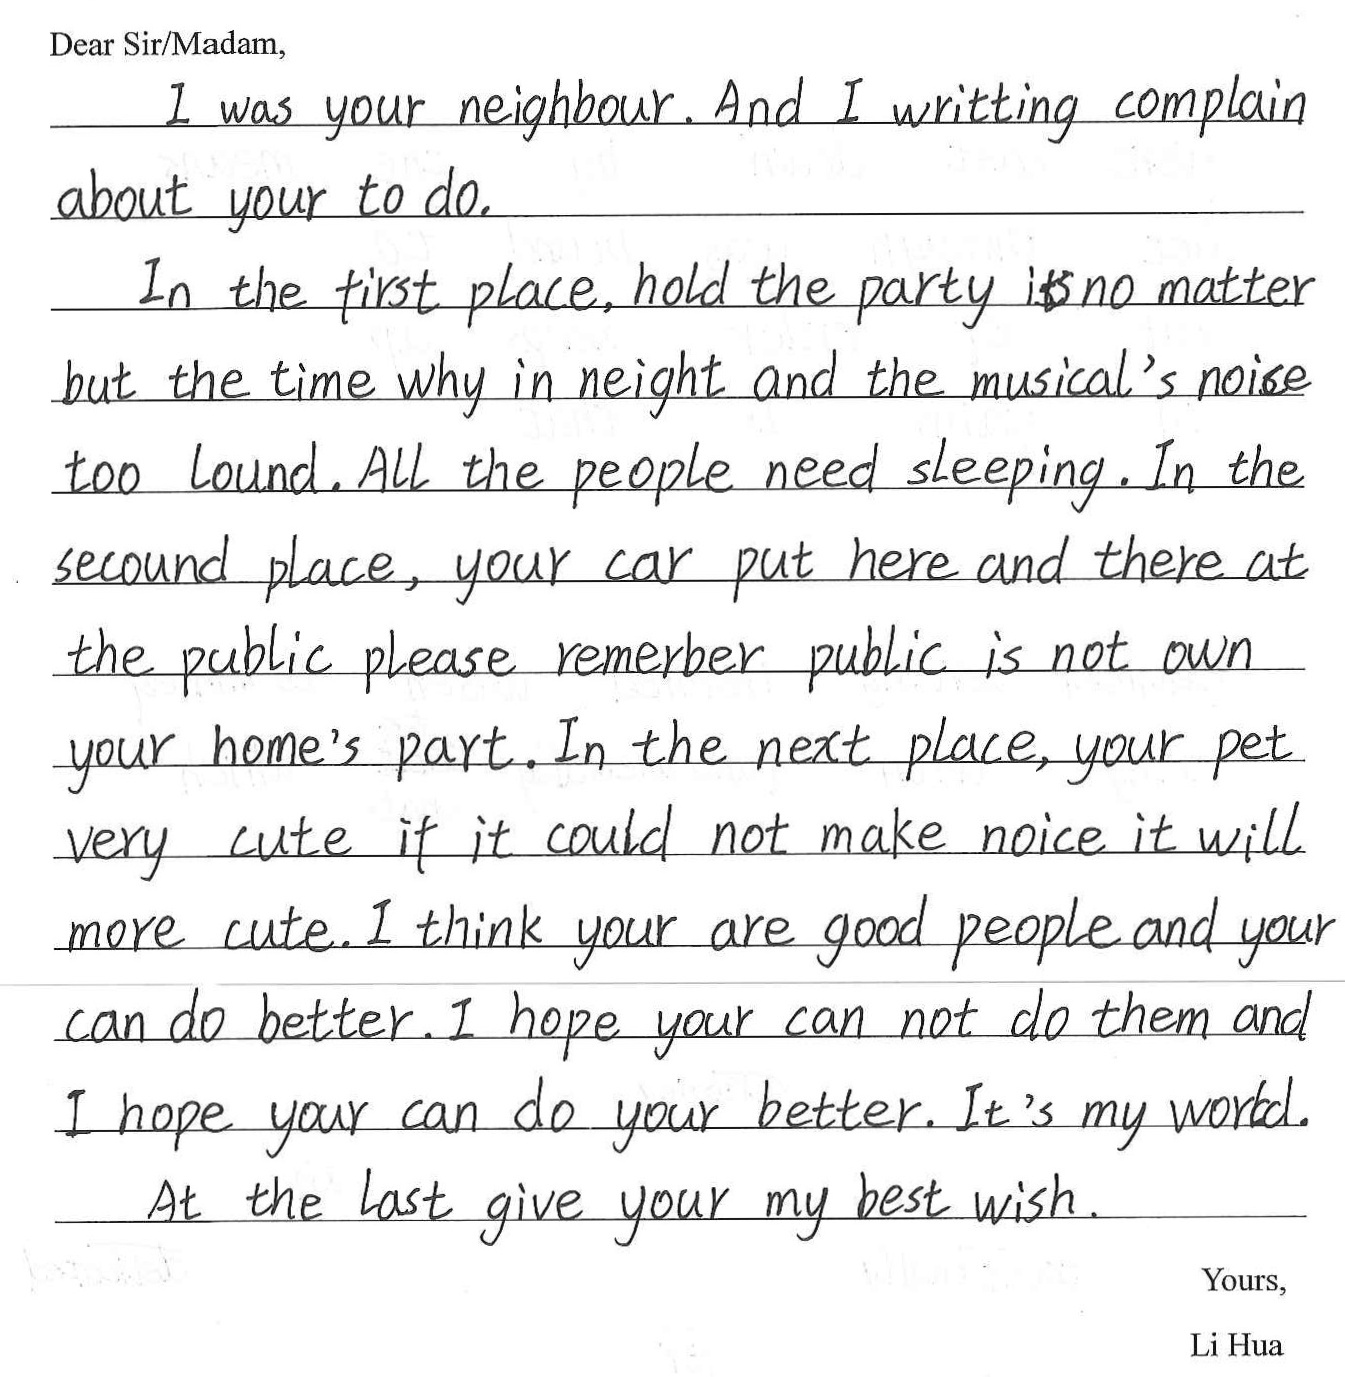 Dear Sir/Madam,
I was your neighbour. And I writting complain
about your to do.
In the first place, hold the party is no matter
but the time why in neight and the musical's noise
too lound. All the people need sleeping. In the
secound place, your car put here and there at
the public please remerber public is not own
your home's part. In the next place, your pet
very cute if it could not make noice it will
more cute. I think your are good people and your
can do better. I hope your can not do them and
I hope your can do your better. It's my
At the last give your my best wish.
Yours,
Li Hua